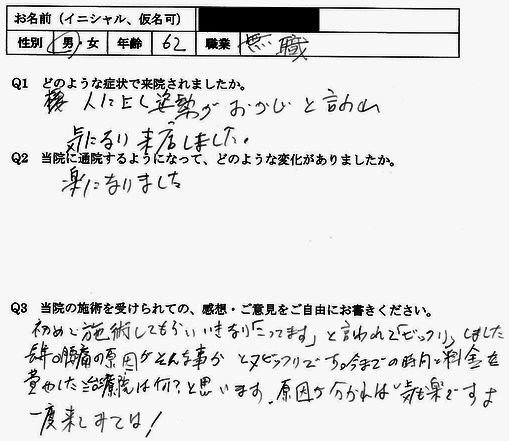 お名前（イニシャル、仮名可）
性別 男・女 年齢 62 職業 無職
Q1 どのような症状で来院されましたか。
人に 姿勢が おかしいと言われ
気になり来店しました。
Q2 当院に通院するようになって、どのような変化がありましたか。
楽になりました
Q3 当院の施術を受けられての、感想・ご意見をご自由にお書きください。
初めて施術してもらい いきなり「こってます」と言われて「ビックリ」しました
長年の腰痛の原因がそんな事か と又ビックリです 今までの時間と料金を
費やした治療院は何？と思います。原因が分かれば気も楽ですよ
一度来てみては！